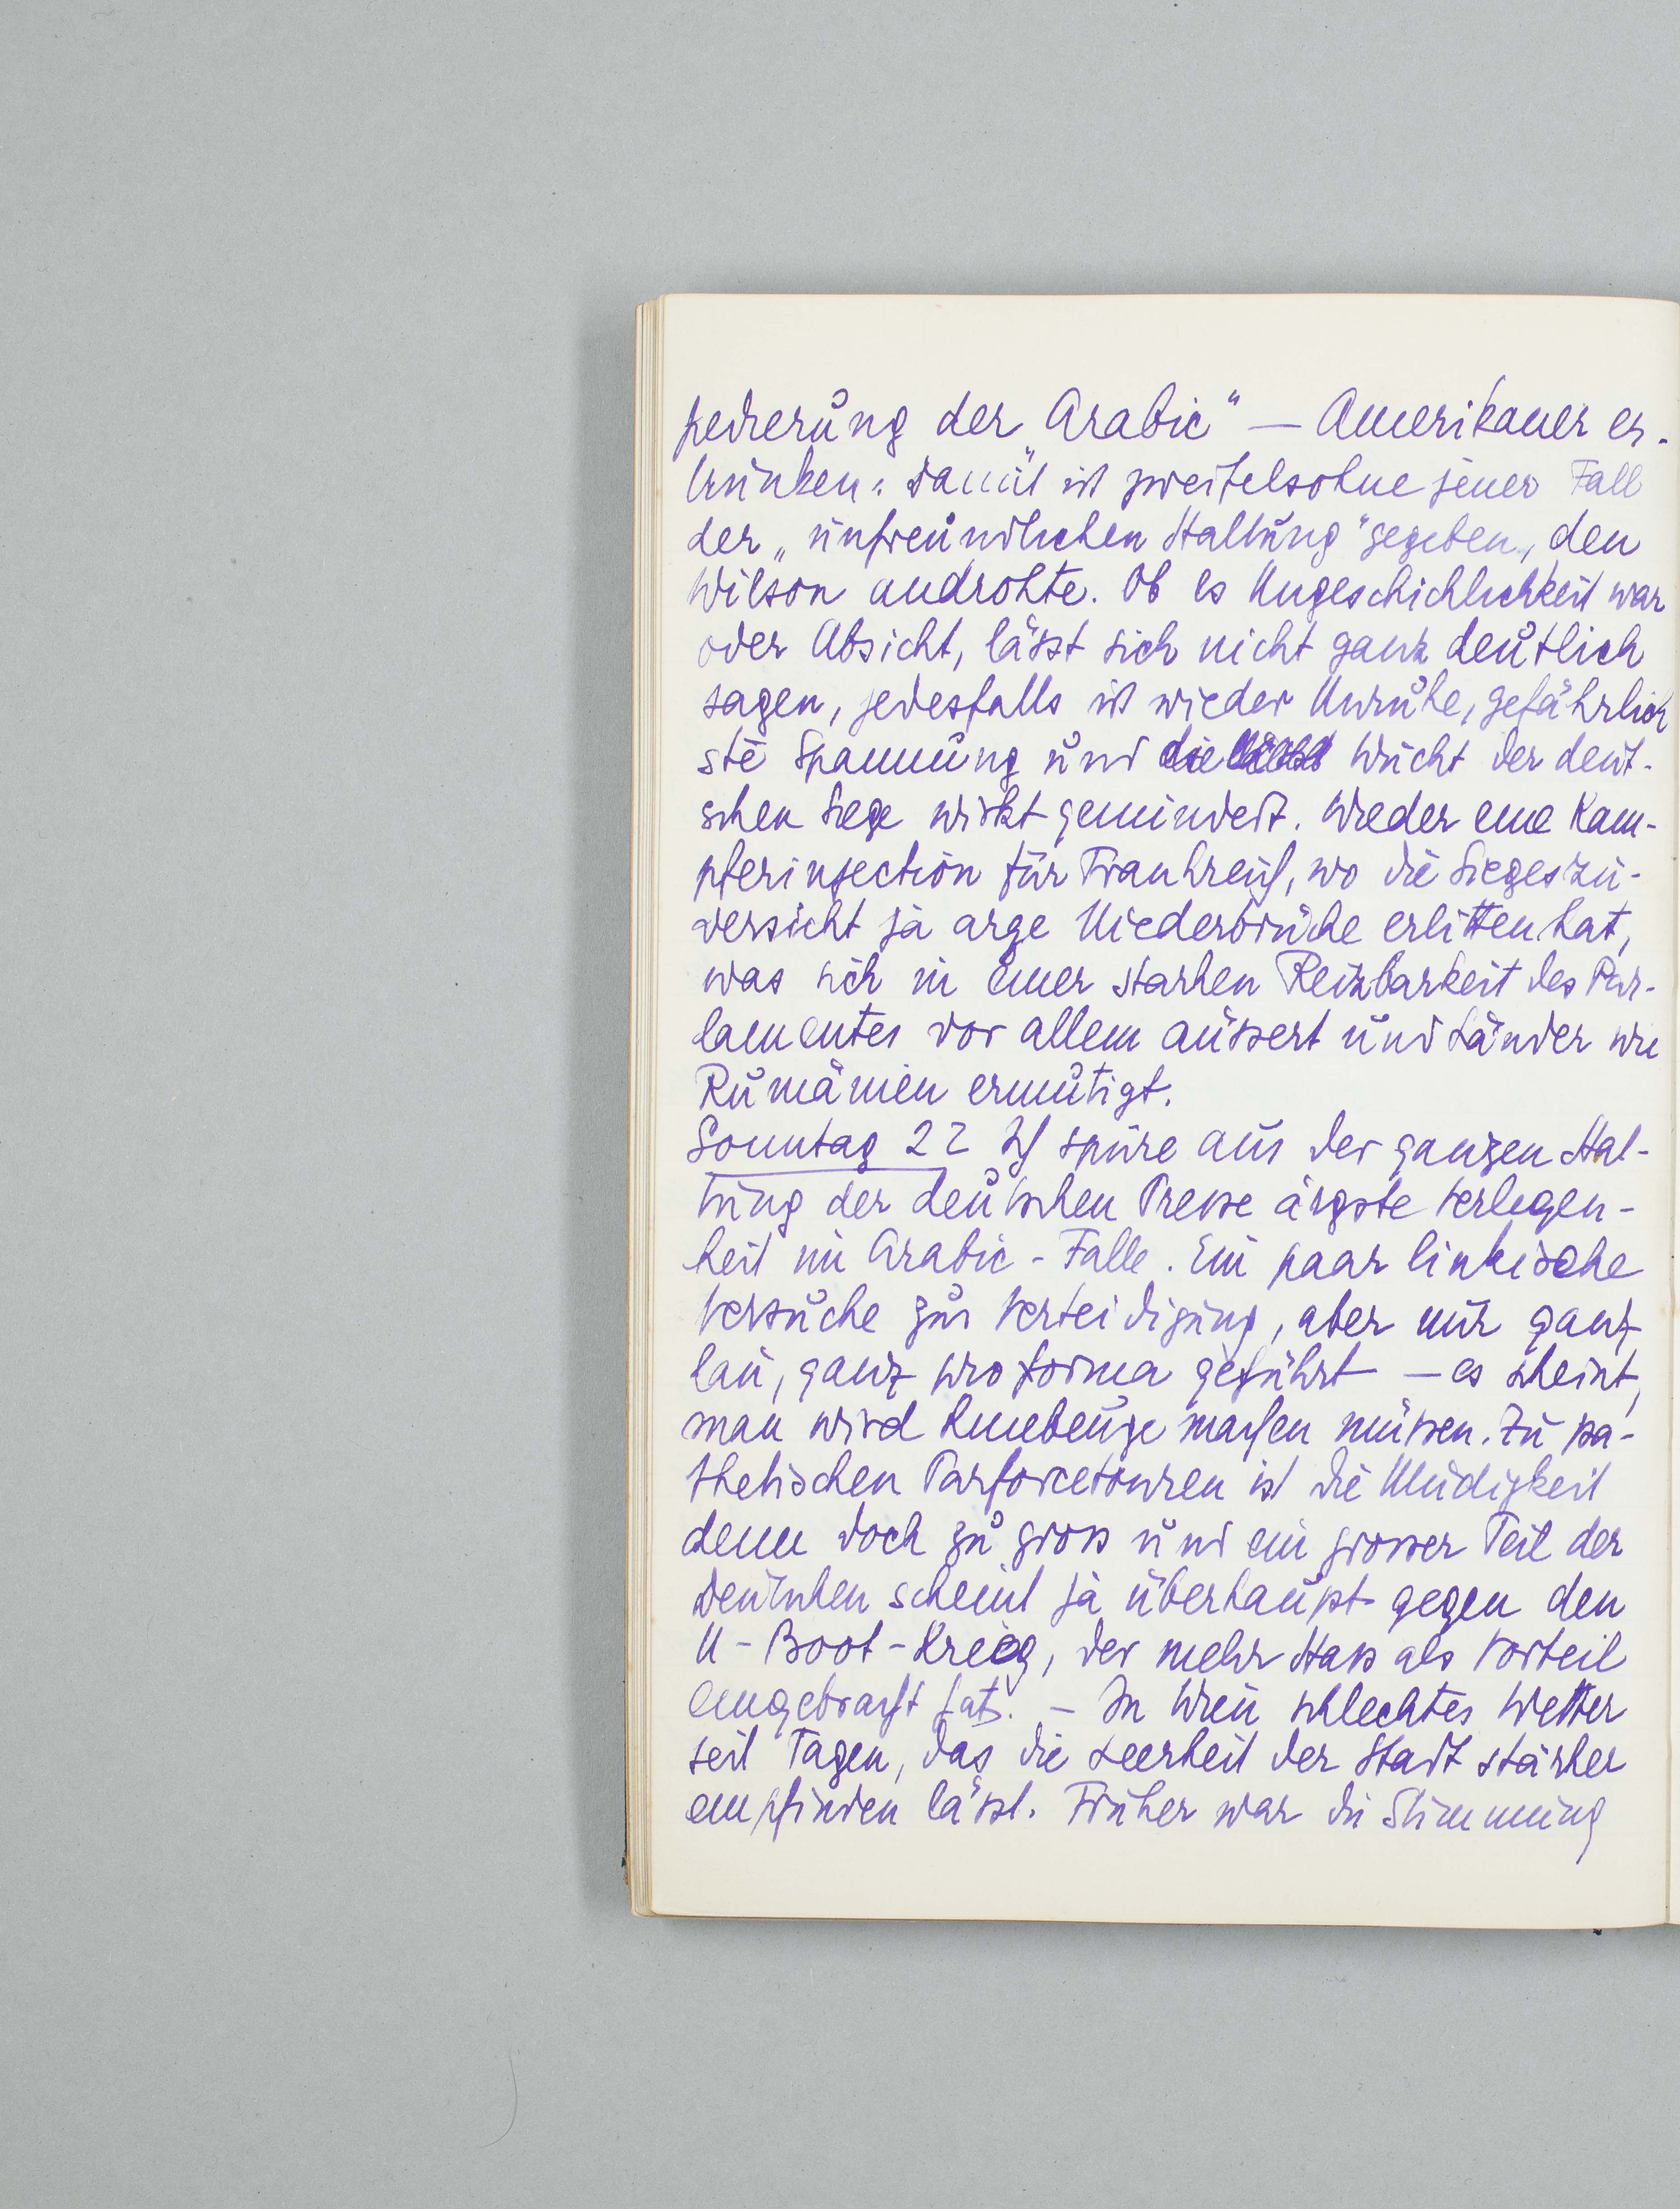 pedierung der „Arabic" — Amerikaner er-
trunken: damit ist zweifelsohne jener Fall
der „unfreundlichen Haltung" gegeben, den
Wilson androhte. Ob es Ungeschicklichkeit war
oder Absicht, lässt sich nicht ganz deutlich
sagen, jedesfalls ist wieder Unruhe, gefährlich
ste Spannung und die Wucht der deut-
schen Siege wirkt gemindert. Wieder eine Kam-
pferinjection für Frankreich, wo die Siegeszu-
versicht ja arge Niederbrüche erlitten hat,
was sich in einer starken Reizbarkeit des Par-
lamentes vor allem äussert und Länder wie
Rumänien ermutigt.
Sonntag 22 Ich spüre aus der ganzen Hal-
tung der deutschen Presse ärgste Verlegen-
heit im Arabic-Falle. Ein paar linkische
Versuche zur Verteidigung, aber nur ganz
lau, ganz pro forma geführt — es scheint,
man wird Kniebeuge machen müssen. Zu pa-
thetischen Parforcetouren ist die Müdigkeit
denn doch zu gross und ein grosser Teil der
Deutschen scheint ja überhaupt gegen den
U-Boot-Krieg, der mehr Hass als Vorteil
eingebracht hat. — In Wien schlechtes Wetter
seit Tagen, das die Leerheit der Stadt stärker
empfinden lässt. Früher war die Stimmung